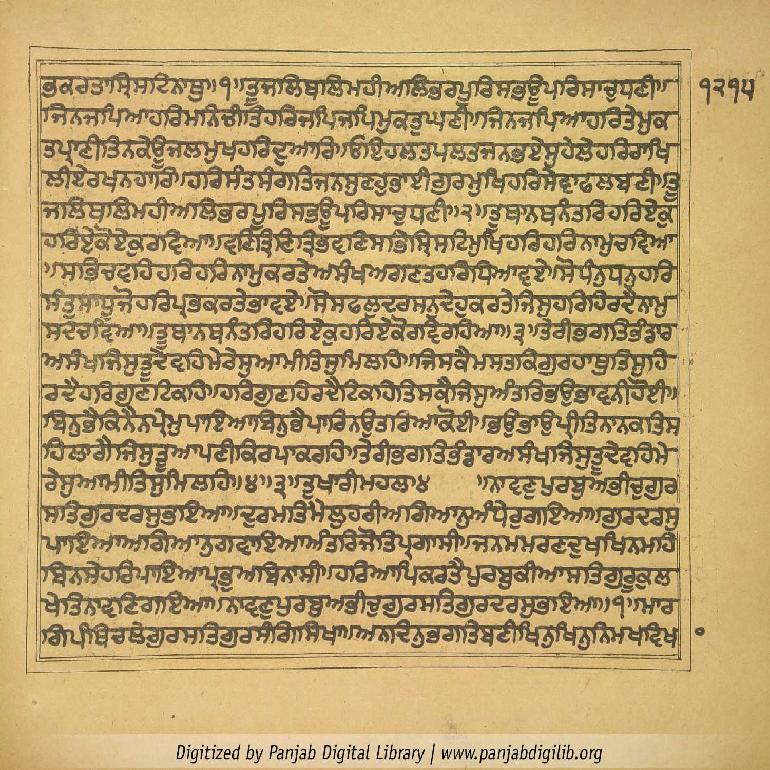 ਭਕਰਤਾਸ੍ਰਿਸਟਿਨਾਥੁ॥੧॥ਤੂਜਲਿਥਲਿਮਹੀਅਲਿਭਰਪੂਰਿਸਭਊਪਰਿਸਾਚੁਧਣੀ॥
ਜਿਨਜਪਿਆਹਰਿਮਨਿਚੀਤਿਹਰਿਜਪਿਜਪਿਮੁਕਤੁਘਣੀ॥ਜਿਨਜਪਿਆਹਰਿਤੇਮੁਕ
ਤਪ੍ਰਾਣੀਤਿਨਕੇਊਜਲਮੁਖਹਰਿਦੁਆਰਿ॥ਓਇਹਲਤਪਲਤਜਨਭਏਸੁਹੇਲੇਹਰਿਰਾਖਿ
ਲੀਏਰਖਨਹਾਰਿ॥ਹਰਿਸੰਤਸੰਗਤਿਜਨਸੁਣਹੁਭਾਈਗੁਰਮੁਖਿਹਰਿਸੇਵਾਫਲਬਣੀ॥ਤੂ
ਜਲਿਥਲਿਮਹੀਅਲਿਭਰਪੂਰਿਸਭਊਪਰਿਸਾਚੁਧਣੀ॥੨॥ਤੂਥਾਨਥਨੰਤਰਿਹਰਿਏਕੁ
ਹਰਿਏਕੋਏਕੁਰਵਿਆ॥ਵਣਿਤ੍ਰਿਣਿਤ੍ਰਿਭਵਣਿਸਭਿਸ੍ਰਿਸਟਿਮੁਖਿਹਰਿਹਰਿਨਾਮੁਚਵਿਆ
॥ਸਭਿਚਵਹਿਹਰਿਹਰਿਨਾਮੁਕਰਤੇਅਸੰਖਅਗਣਤਹਰਿਧਿਆਵਏ॥ਸੋਧੰਨੁਧਨੁਹਰਿ
ਸੰਤੁਸਾਧੁਜੋਹਰਿਪ੍ਰਭਕਰਤੇਭਾਵਏ॥ਸੋਸਫਲੁਦਰਸਨੁਦੇਹੁਕਰਤੇਜਿਸੁਹਰਿਹਿਰਦੈਨਾਮੁ
ਸਦਚਵਿਆ॥ਤੂਥਾਨਥਨੰਤਰਿਹਰਿਏਕੁਹਰਿਏਕੋਰਵਿਰਹਿਆ॥੩॥ਤੇਰੀਭਗਤਿਭੰਡਾਰ
ਅਸੰਖਜਿਸੁਤੂਦੇਵਹਿਮੇਰੇਸੁਆਮੀਤਿਸੁਮਿਲਹਿ॥ਜਿਸਕੈਮਸਤਕਿਗੁਰਹਾਥੁਤਿਸੁਹਿ
ਰਦੈਹਰਿਗੁਣਟਿਕਹਿ॥ਹਰਿਗੁਣਹਿਰਦੈਟਿਕਹਿਤਿਸਕੈਜਿਸੁਅੰਤਰਿਭਉਭਾਵਨੀਹੋਈ॥
ਬਿਨੁਭੈਕਿਨੈਨਪ੍ਰੇਮੁਪਾਇਆਬਿਨੁਭੈਪਾਰਿਨਉਤਰਿਆਕੋਈ॥ਭਉਭਾਉਪ੍ਰੀਤਿਨਾਨਕਤਿਸ
ਹਿਲਾਗੈਜਿਸੁਤੂਆਪਣੀਕਿਰਪਾਕਰਹਿ॥ਤੇਰੀਭਗਤਿਭੰਡਾਰਅਸੰਖਜਿਸੁਤੂਦੇਵਹਿਮੇ
ਰੇਸੁਆਮੀਤਿਸੁਮਿਲਹਿ॥੪॥੩॥ਤੁਖਾਰੀਮਹਲਾ੪ ॥ਨਾਵਣੁਪੁਰਬੁਅਭੀਚੁਗੁਰ
ਸਤਿਗੁਰਦਰਸੁਭਇਆ॥ਦੁਰਮਤਿਮੈਲੁਹਰੀਅਗਿਆਨੁਅੰਧੇਰੁਗਇਆ॥ਗੁਰਦਰਸੁ
ਪਾਇਆਅਗਿਆਨੁਗਵਾਇਆਅੰਤਰਿਜੋਤਿਪ੍ਰਗਾਸੀ॥ਜਨਮਮਰਣਦੁਖਖਿਨਮਹਿ
ਬਿਨਸੇਹਰਿਪਾਇਆਪ੍ਰਭੁਅਬਿਨਾਸੀ॥ਹਰਿਆਪਿਕਰਤੈਪੁਰਬੁਕੀਆਸਤਿਗੁਰੂਕੁਲ
ਖੇਤਿਨਾਵਣਿਗਇਆ॥ਨਾਵਣੁਪੁਰਬੁਅਭੀਚੁਗੁਰਸਤਿਗੁਰਦਰਸੁਭਇਆ॥੧॥ਮਾਰ
ਗਿਪੰਥਿਚਲੇਗੁਰਸਤਿਗੁਰਸੰਗਿਸਿਖਾ॥ਅਨਦਿਨੁਭਗਤਿਬਣੀਖਿਨੁਖਿਨੁਨਿਮਖਵਿਖ
੧੨੧੫
Digitized by Panjab Digital Library | www.panjabdigilib.org